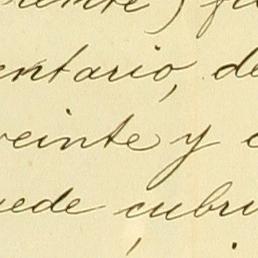 ente) f
entario, de
veinte y c
uede cubri